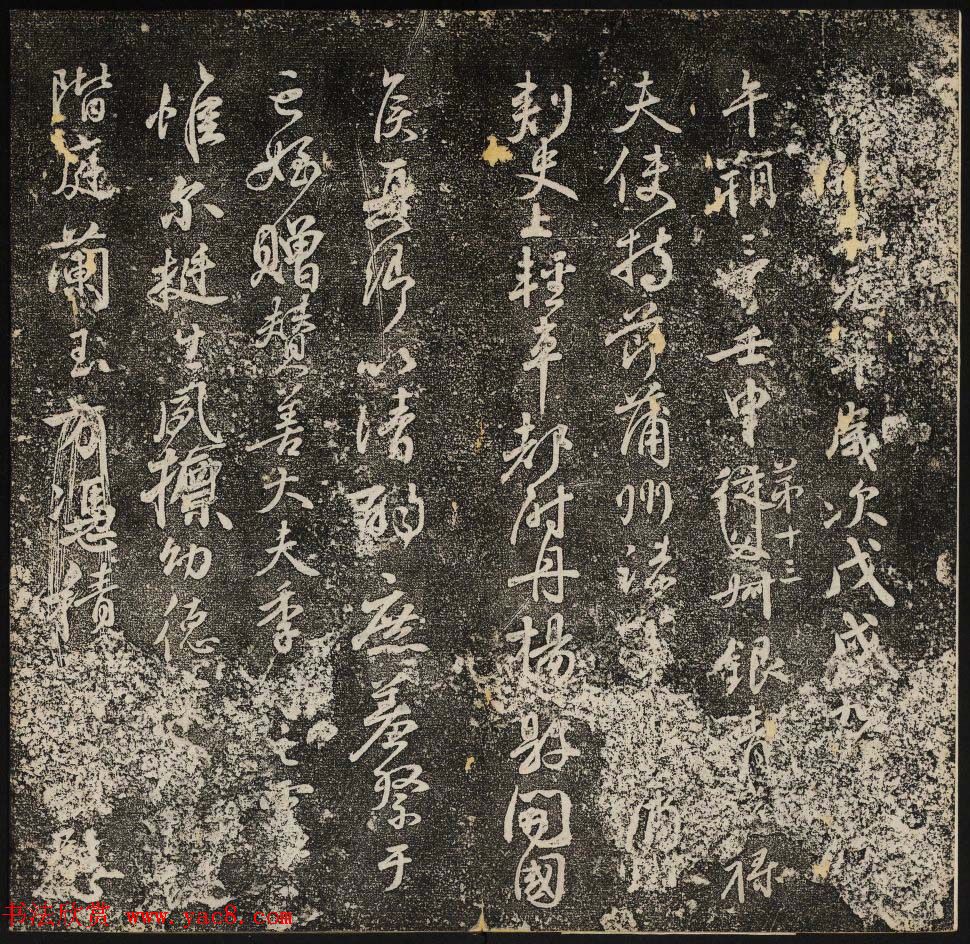 元年歲次戊戌九
午朔三日壬申第十三從父銀青祿
夫使持節蒲州諸軍事蒲州
刺史上輕車都尉丹楊縣開國
侯真卿以清酌庶羞祭于
亡姪贈贊善大夫季之靈
惟爾挺生夙標幼德
階庭蘭玉方憑積慰
书法欣赏 www.yac8.com